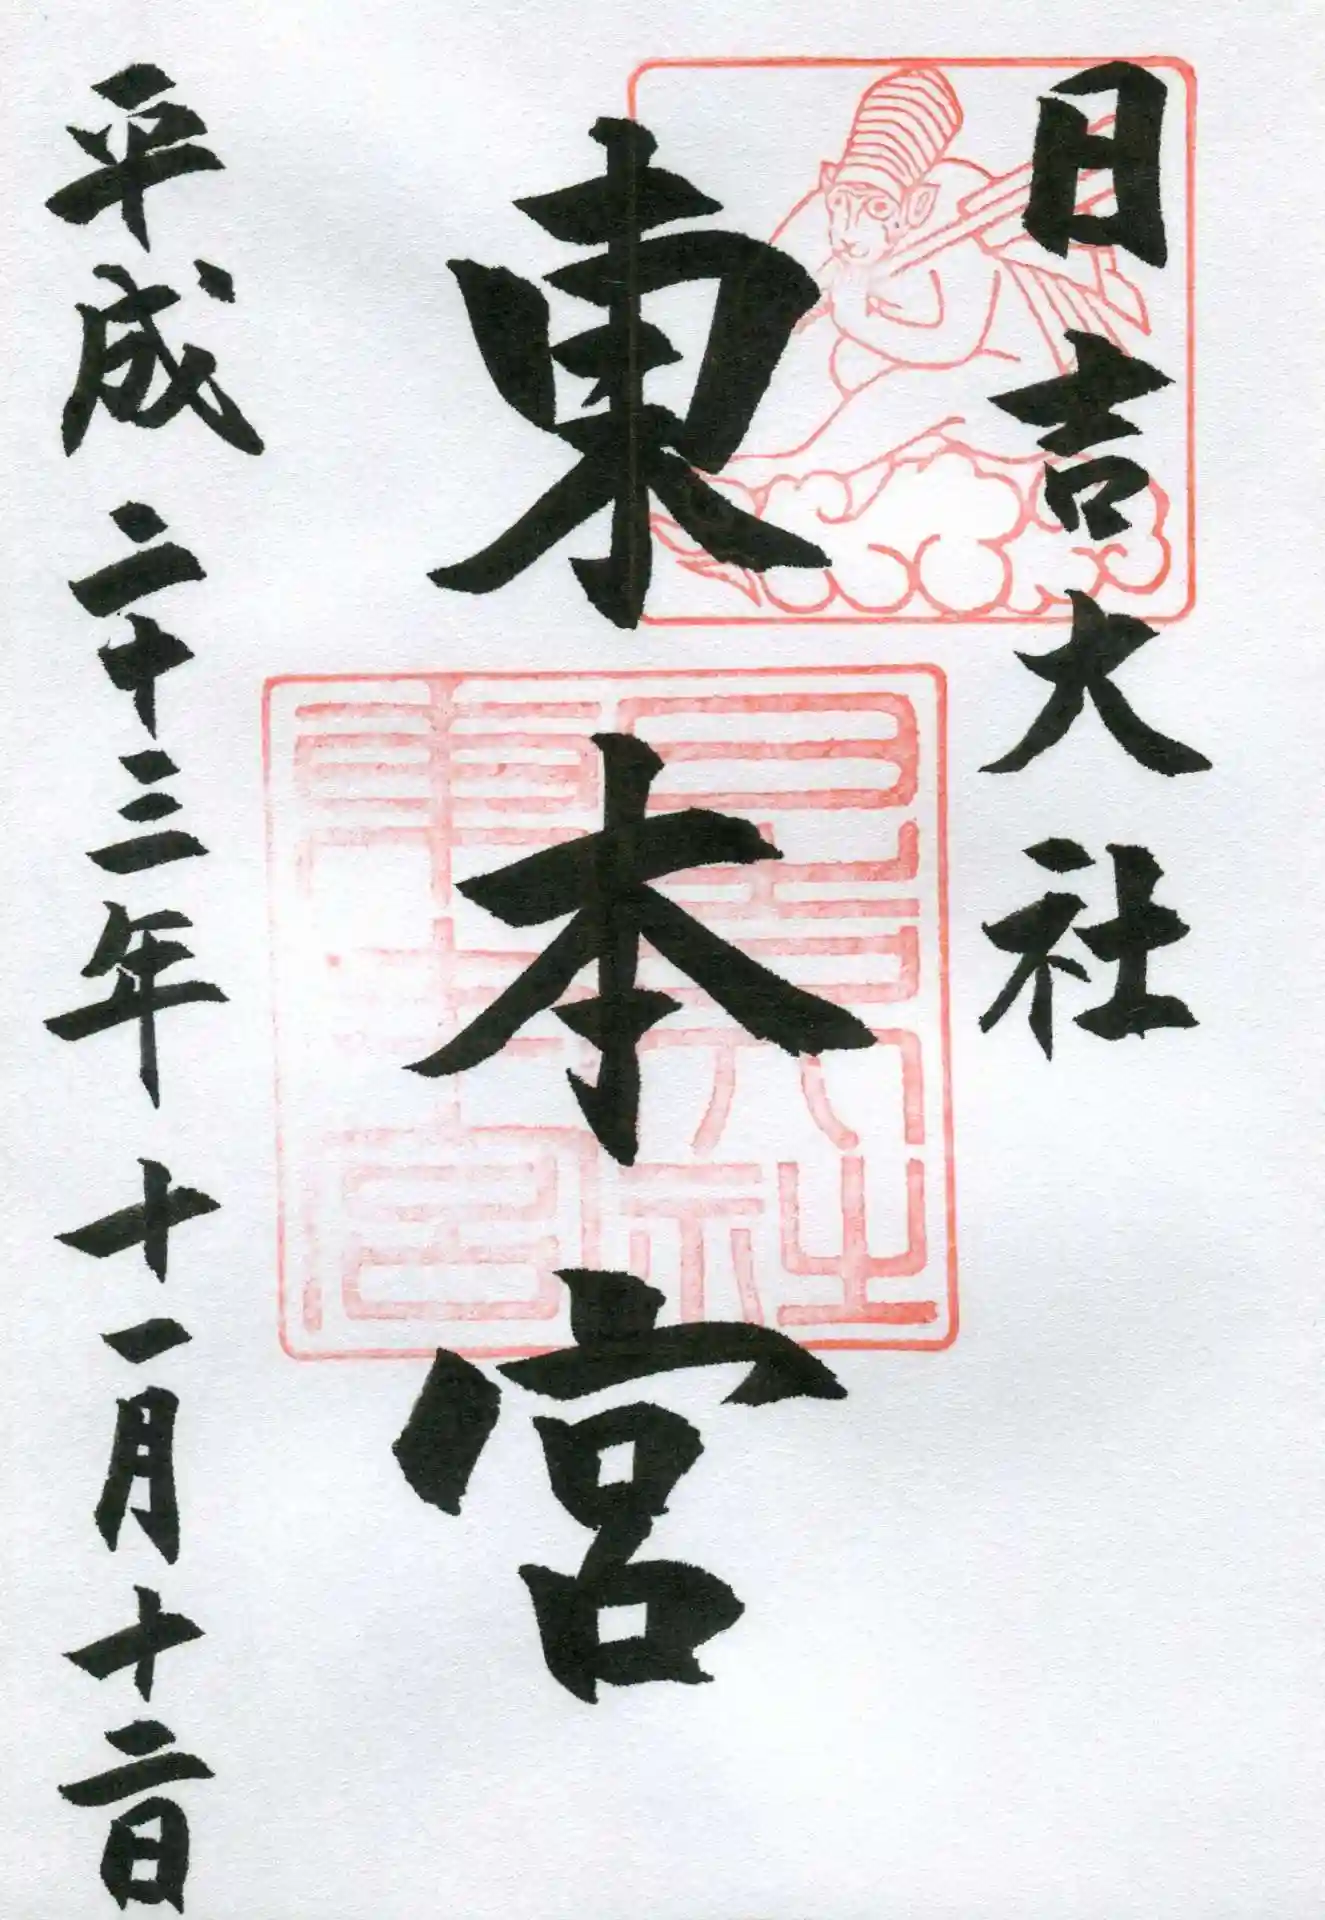 日吉大社
東本宮
平成二十三年十一月十二日
日吉大社
東本宮